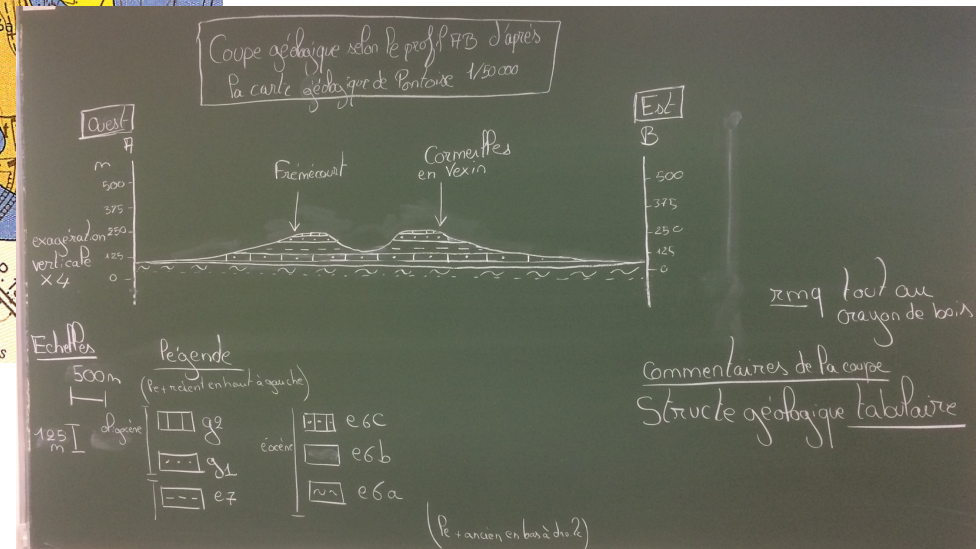 Coupe géologique selon le profil AB d'après
la carte géologique de Pontoise 1/50 000
Ouest
A
Est
B
m
500
375
250
125
0
exagération
verticale
×4
Frémécourt
Cormeilles
en Vexin
500
375
250
125
0
rmq tout au
crayon de bois
Echelles
500m
125
m
Légende
(le + récent en haut à gauche)
oligocène
g2
g1
e7
éocène
e6c
e6b
e6a
(le + ancien en bas à droite)
Commentaires de la coupe
Structe géologique tabulaire